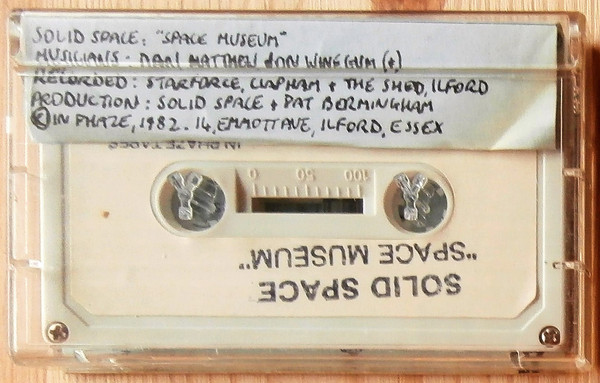 SOLID SPACE: "SPACE MUSEUM"
MUSICIANS: DAN MATTHEW JON WINEGUM (+)
RECORDED: STARFORCE, CLAPHAM + THE SHED, ILFORD
PRODUCTION: SOLID SPACE + PAT BERMINGHAM
© IN PHAZE, 1982. 14, EMMOTT AVE, ILFORD, ESSEX
SOLID SPACE
"SPACE MUSEUM"
100 50 0
IN PHAZE TAPES